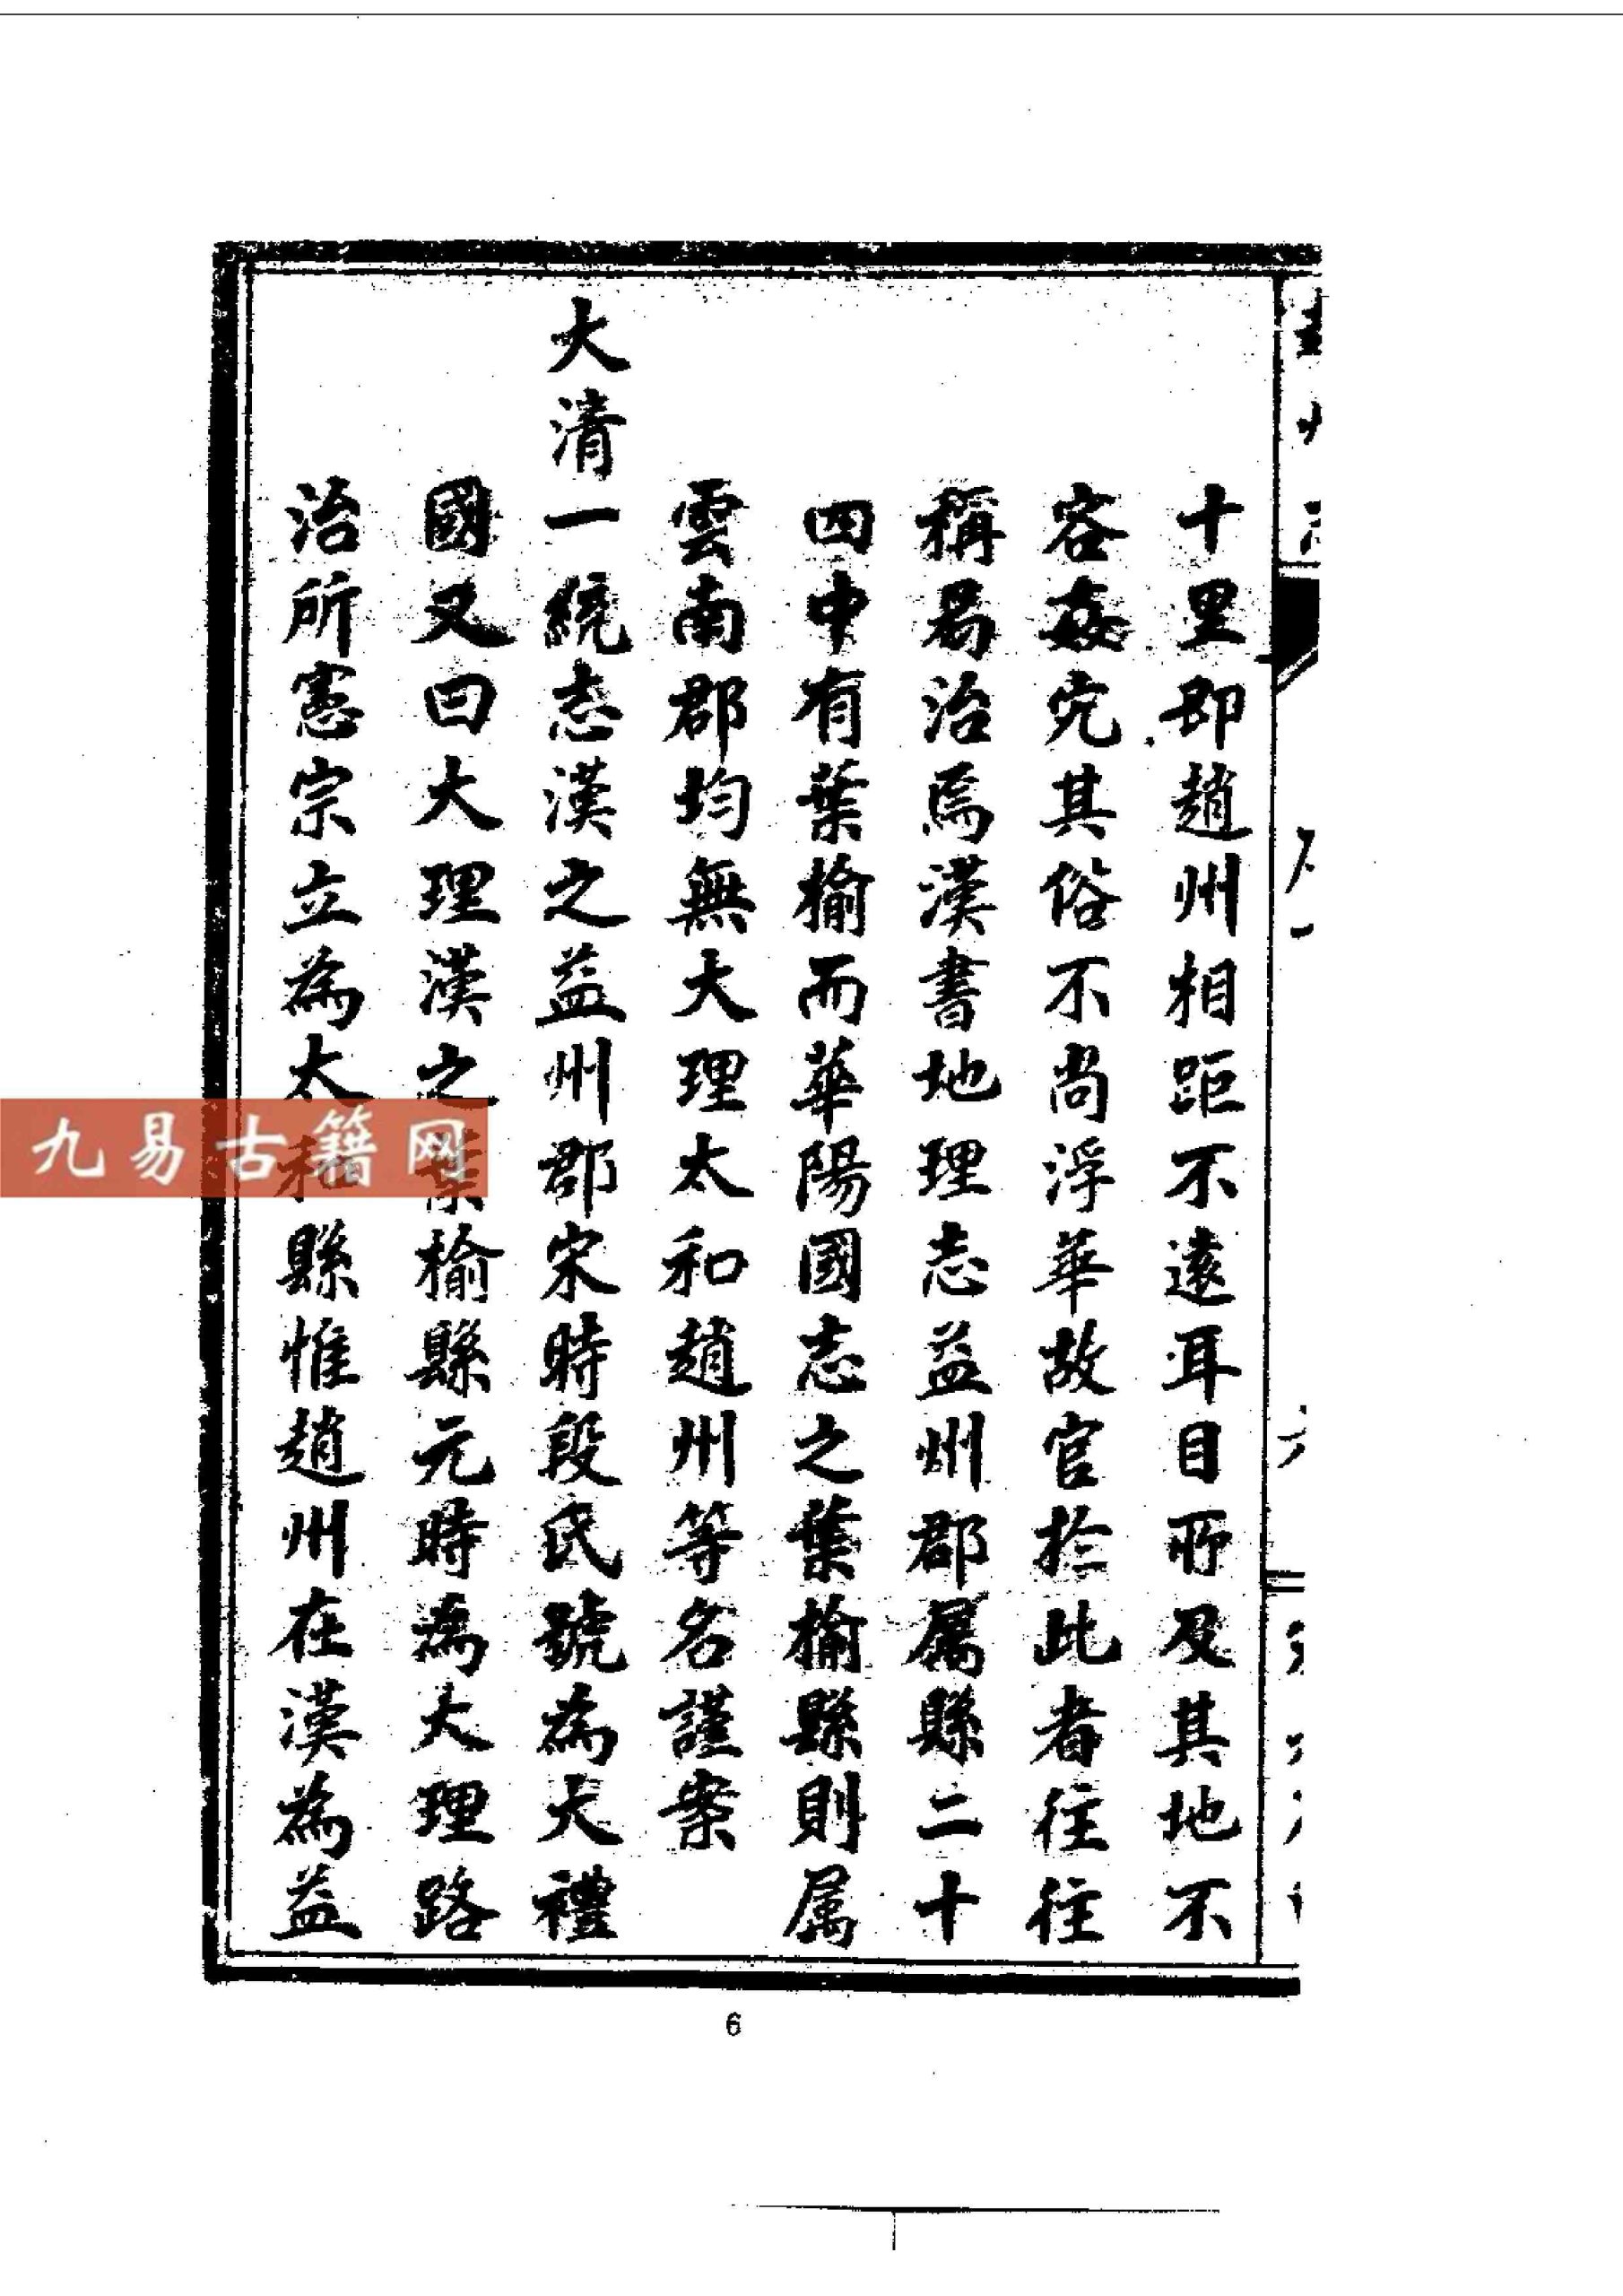 十里即趙州相距不遠耳目所及其地不
容姦宄其俗不尚浮華故官於此者往往
稱易治焉漢書地理志益州郡属縣二十
四中有葉榆而華陽國志之葉榆縣則属
雲南郡均無大理太和趙州等名謹案
大清一統志漢之益州郡宋時段氏號為大禮
國又曰大理漢之葉榆縣元時為大理路
治所憲宗立為太和縣惟趙州在漢為益
九易古籍网
6